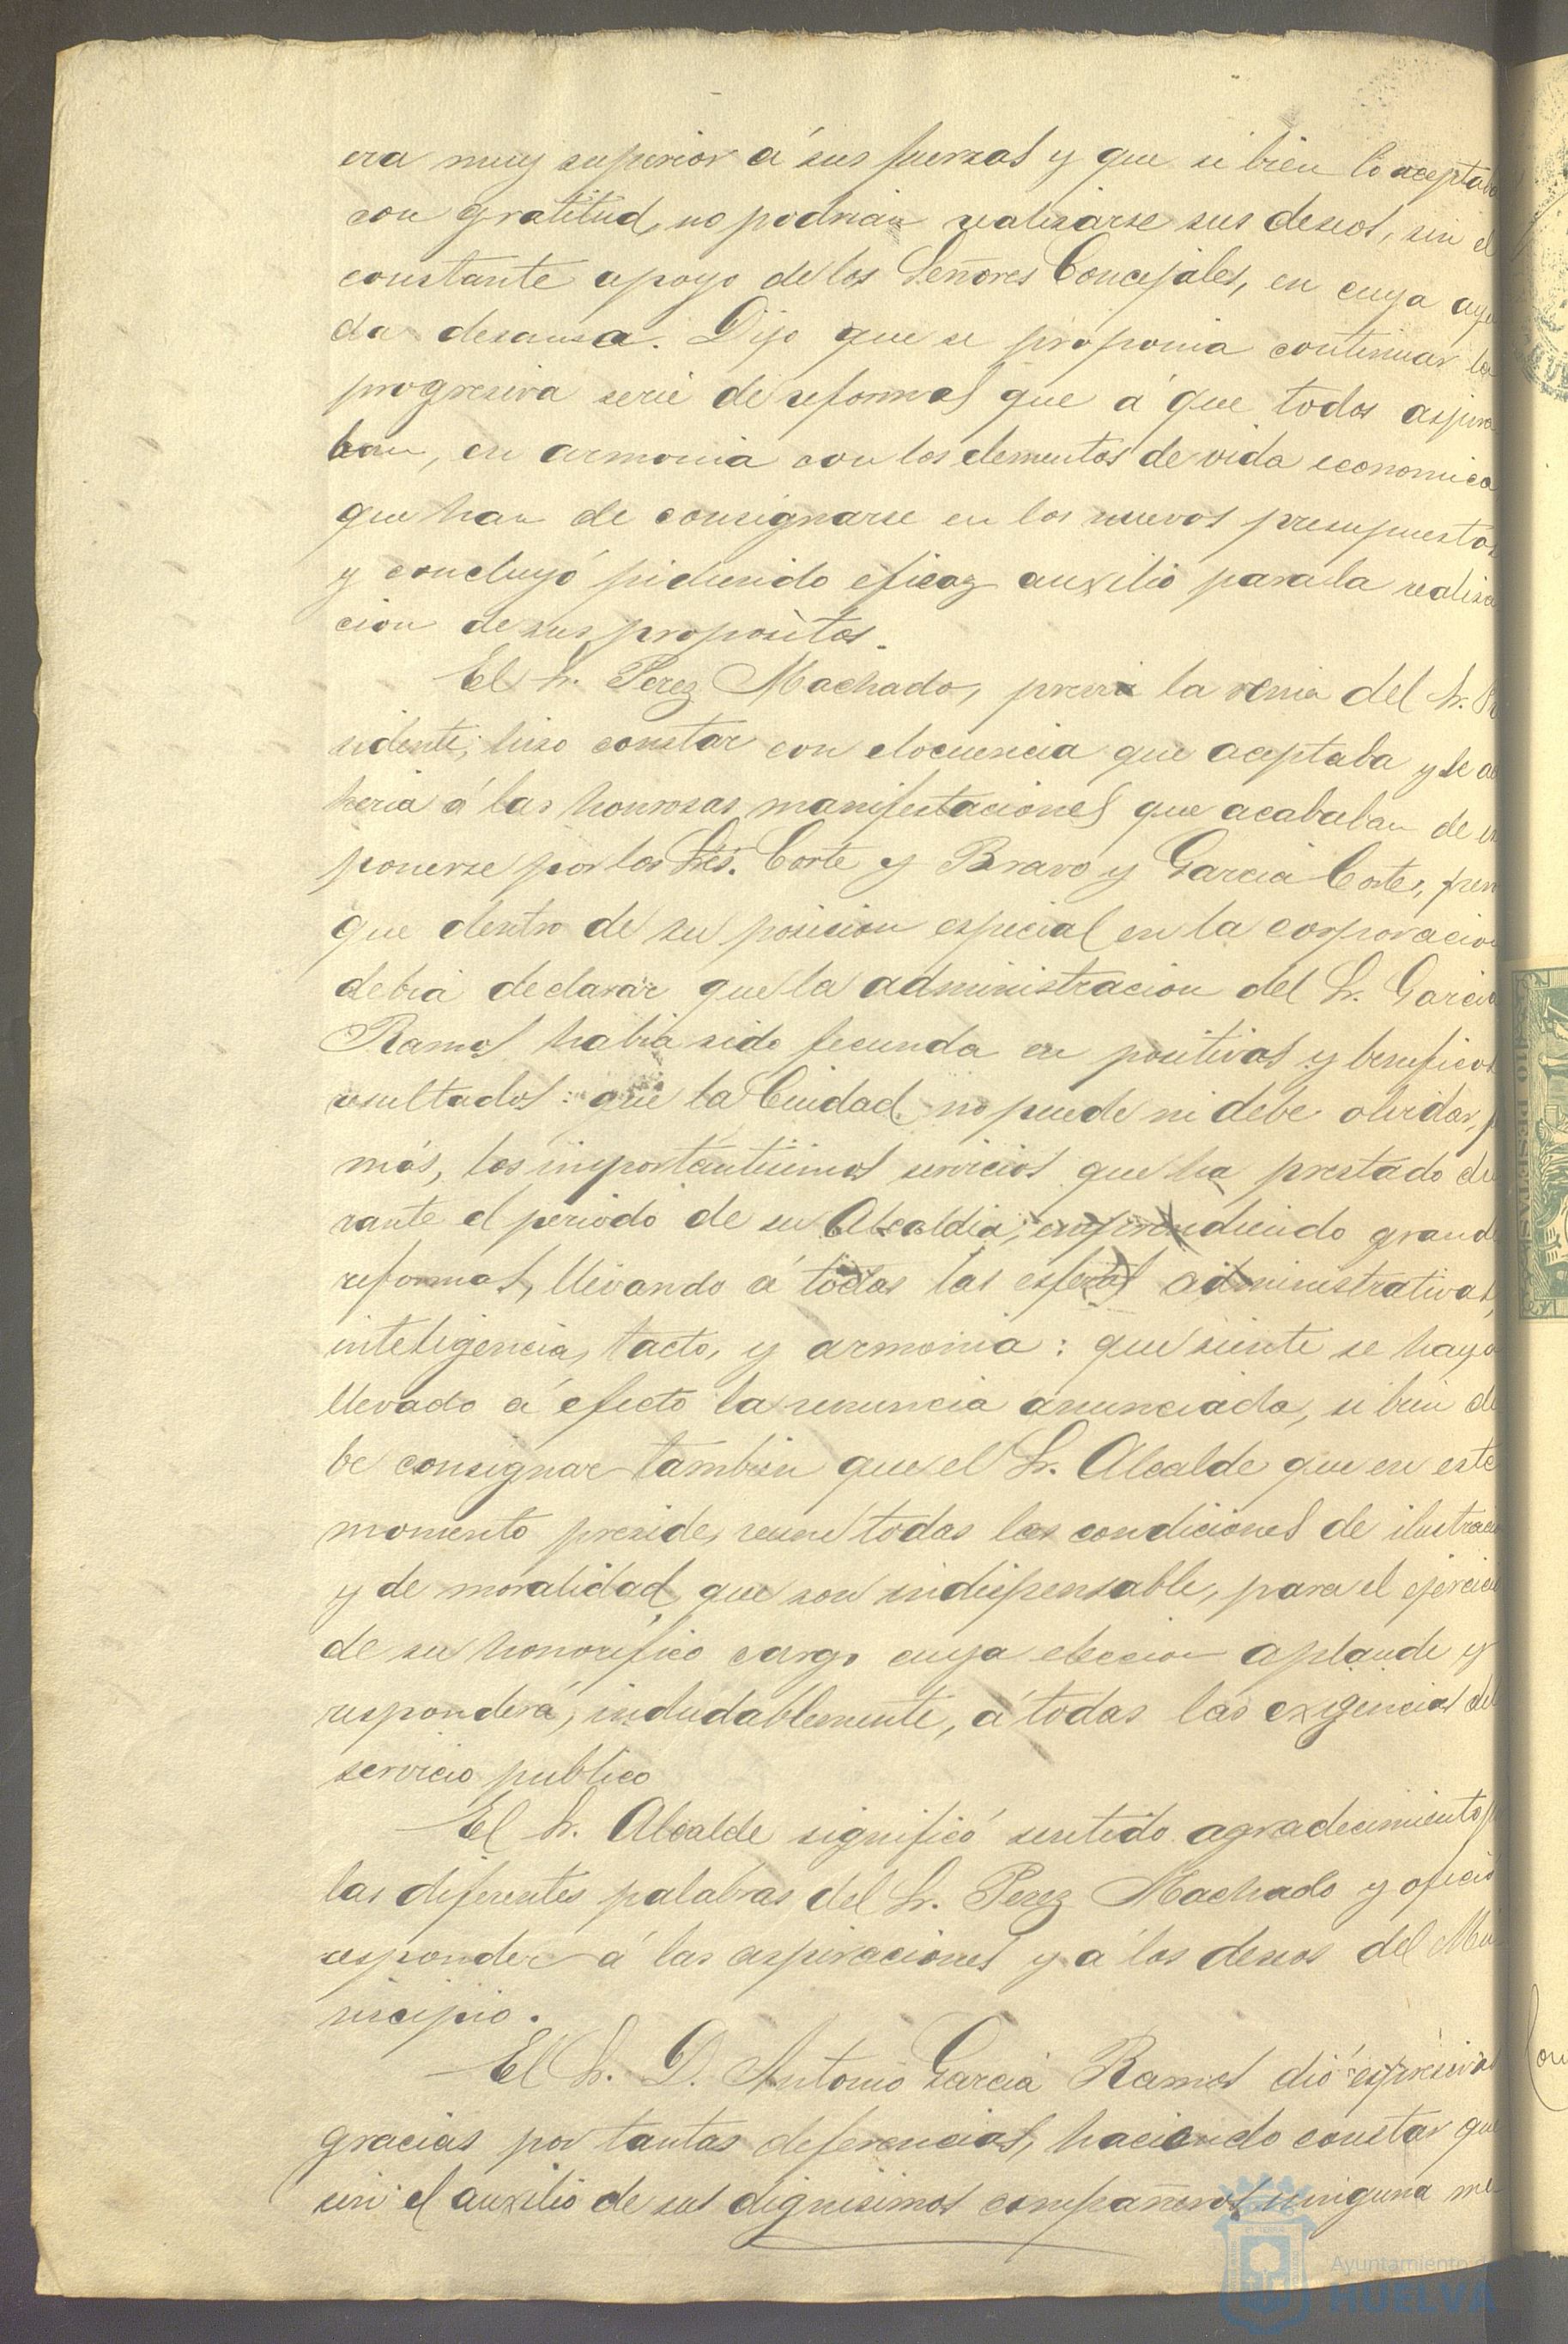 era muy superior á sus fuerzas y que si bien lo aceptaba
con gratitud, no podrian realizarse sus deseos, sin el
constante apoyo de los Señores Concejales, en cuya ayu
da descansa. Dijo que se proponia continuar la
progresiva serie de reformas que á que todos aspira
ban, en armonia con los elementos de vida economica
que han de consignarse en los nuevos presupuestos
y concluyó pidiendo eficaz auxilio para la realiza
cion de sus propositos.
El Sr. Perez Machado, previa la venia del Sr. Pre
sidente, hizo constar con elocuencia que aceptaba y se ad
heria á las honrosas manifestaciones que acababan de ex
ponerse por los Sres. Corte y Bravo y Garcia Cortes,
que dentro de su posicion especial en la corporacion
debia declarar que la administracion del Sr. Garcia
Ramos habia sido fecunda en positivos y beneficos
resultados: que la Ciudad no puede ni debe olvidar, ja
más, los importantisimos servicios que ha prestado du
rante el periodo de su Alcaldia, emprendiendo grandes
reformas, llevando á todas las esferas administrativas,
inteligencia, tacto, y armonia: que siente se haya
llevado á efecto la renuncia anunciada, si bien de
be consignar tambien que el Sr. Alcalde que en este
momento preside, reune todas las condiciones de ilustracion
y de moralidad que son indispensable, para el ejercicio
de su honorifico cargo cuya eleccion aplaude y
responderá, indudablemente, á todas las exigencias del
servicio publico
El Sr. Alcalde significó sentido agradecimiento p
las diferentes palabras del Sr. Perez Machado y ofreció
responder á las aspiraciones y á los deseos del Mu
nicipio.
El Sr. D. Antonio Garcia Ramos dió expresivas
gracias por tantas deferencias, haciendo constar que
sin el auxilio de sus dignisimos compañeros, ninguna me
Ayuntamiento
HUELVA